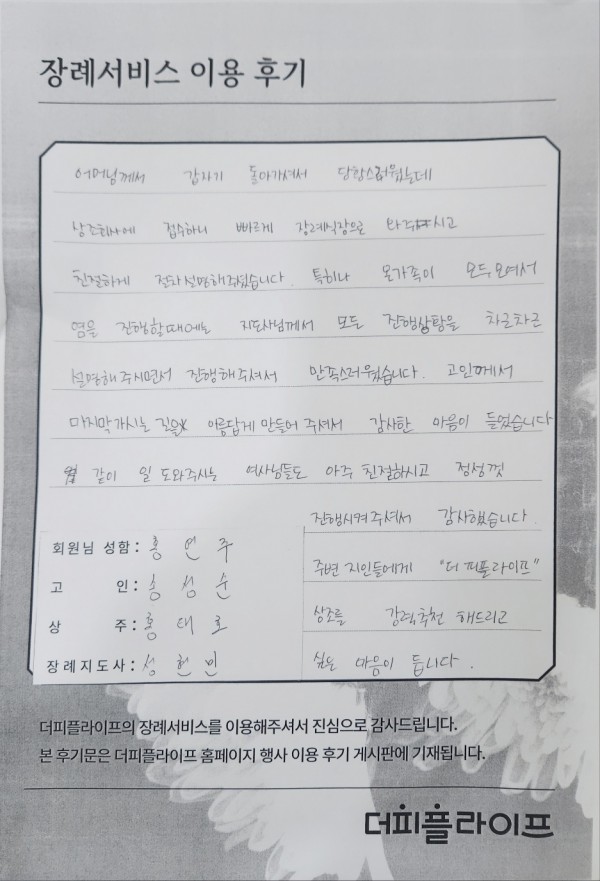 장례서비스 이용 후기
어머님께서 갑자기 돌아가셔서 당황스러웠는데
상조회사에 접수하니 빠르게 장례식장으로 와주시고
친절하게 전화설명해주셨습니다. 특히나 온가족이 모두모여서
염을 진행할때에는 지도사님께서 모든 진행상황을 차근차근
설명해주시면서 진행해주셔서 만족스러웠습니다. 고인께서
마지막가시는 길을 아름답게 만들어 주셔서 감사한 마음이 들었습니다
같이 일 도와주시는 여사님들도 아주 친절하시고 정성껏
진행시켜주셔서 감사했습니다.
주변 지인들에게 "더피플라이프"
상조를 강력추천 해드리고
싶은 마음이 듭니다.
회원님 성함: 홍인주
고 인: 송성순
상 주: 홍태호
장례지도사: 성현빈
더피플라이프의 장례서비스를 이용해주셔서 진심으로 감사드립니다.
본 후기문은 더피플라이프 홈페이지 행사 이용 후기 게시판에 기재됩니다.
더피플라이프